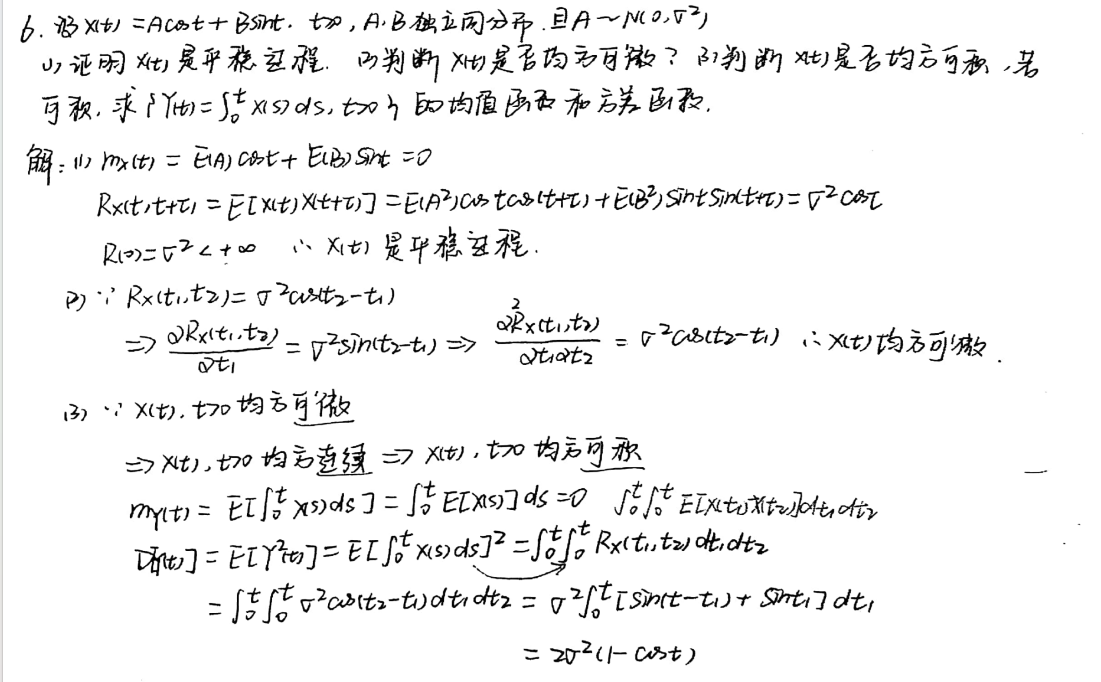 6. 设X(t) = Acost + Bsint. t>0, A.B独立同分布.且A~N(0,σ²)
(1) 证明 X(t) 是平稳过程. (2)判断 X(t)是否均方可微? (3)判断 X(t)是否均方可积,若
可积,求{Y(t)=∫₀ᵗX(s)ds, t>0}的均值函数和方差函数.
解:(1) mx(t) = E(A)cost + E(B)sint = 0
Rx(t,t+τ) = E[X(t)X(t+τ)] = E(A²)costcos(t+τ) + E(B²)sintsin(t+τ) = σ²cosτ
R(0)=σ²<+∞ ∴ X(t) 是平稳过程.
(2) ∵ Rx(t₁,t₂) = σ²cos(t₂-t₁)
⇒ ∂Rx(t₁,t₂)/∂t₁ = σ²sin(t₂-t₁) ⇒ ∂²Rx(t₁,t₂)/∂t₁∂t₂ = σ²cos(t₂-t₁) ∴X(t)均方可微.
(3) ∵ X(t). t>0 均方可微
⇒ X(t), t>0 均方连续 ⇒ X(t), t>0 均方可积
my(t) = E[∫₀ᵗX(s)ds] = ∫₀ᵗE[X(s)]ds = 0 ∫₀ᵗ∫₀ᵗE[X(t₁)X(t₂)]dt₁dt₂
D[Y(t)] = E[Y²(t)] = E[∫₀ᵗX(s)ds]² = ∫₀ᵗ∫₀ᵗRx(t₁,t₂)dt₁dt₂
= ∫₀ᵗ∫₀ᵗσ²cos(t₂-t₁)dt₁dt₂ = σ²∫₀ᵗ[sin(t-t₁) + sint₁]dt₁
= 2σ²(1-cost)